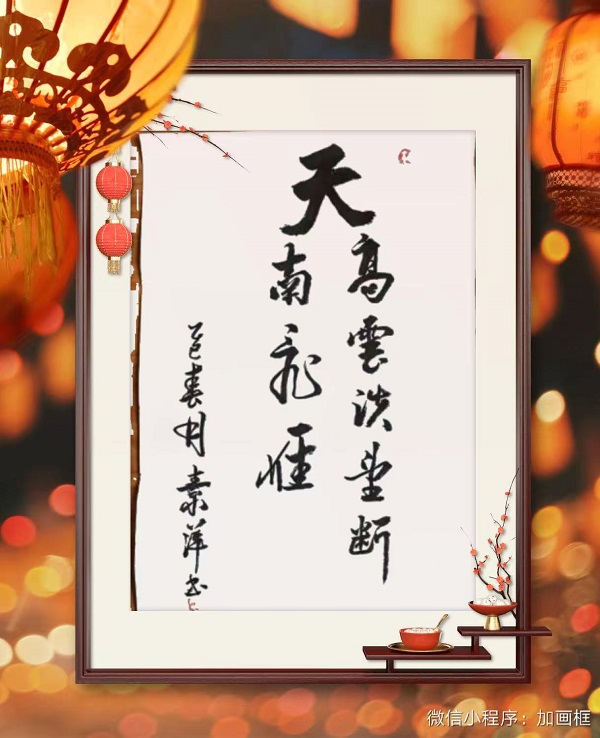 天高雲淡望断
南飛雁
乙巳春月素萍书
微信小程序：加画框